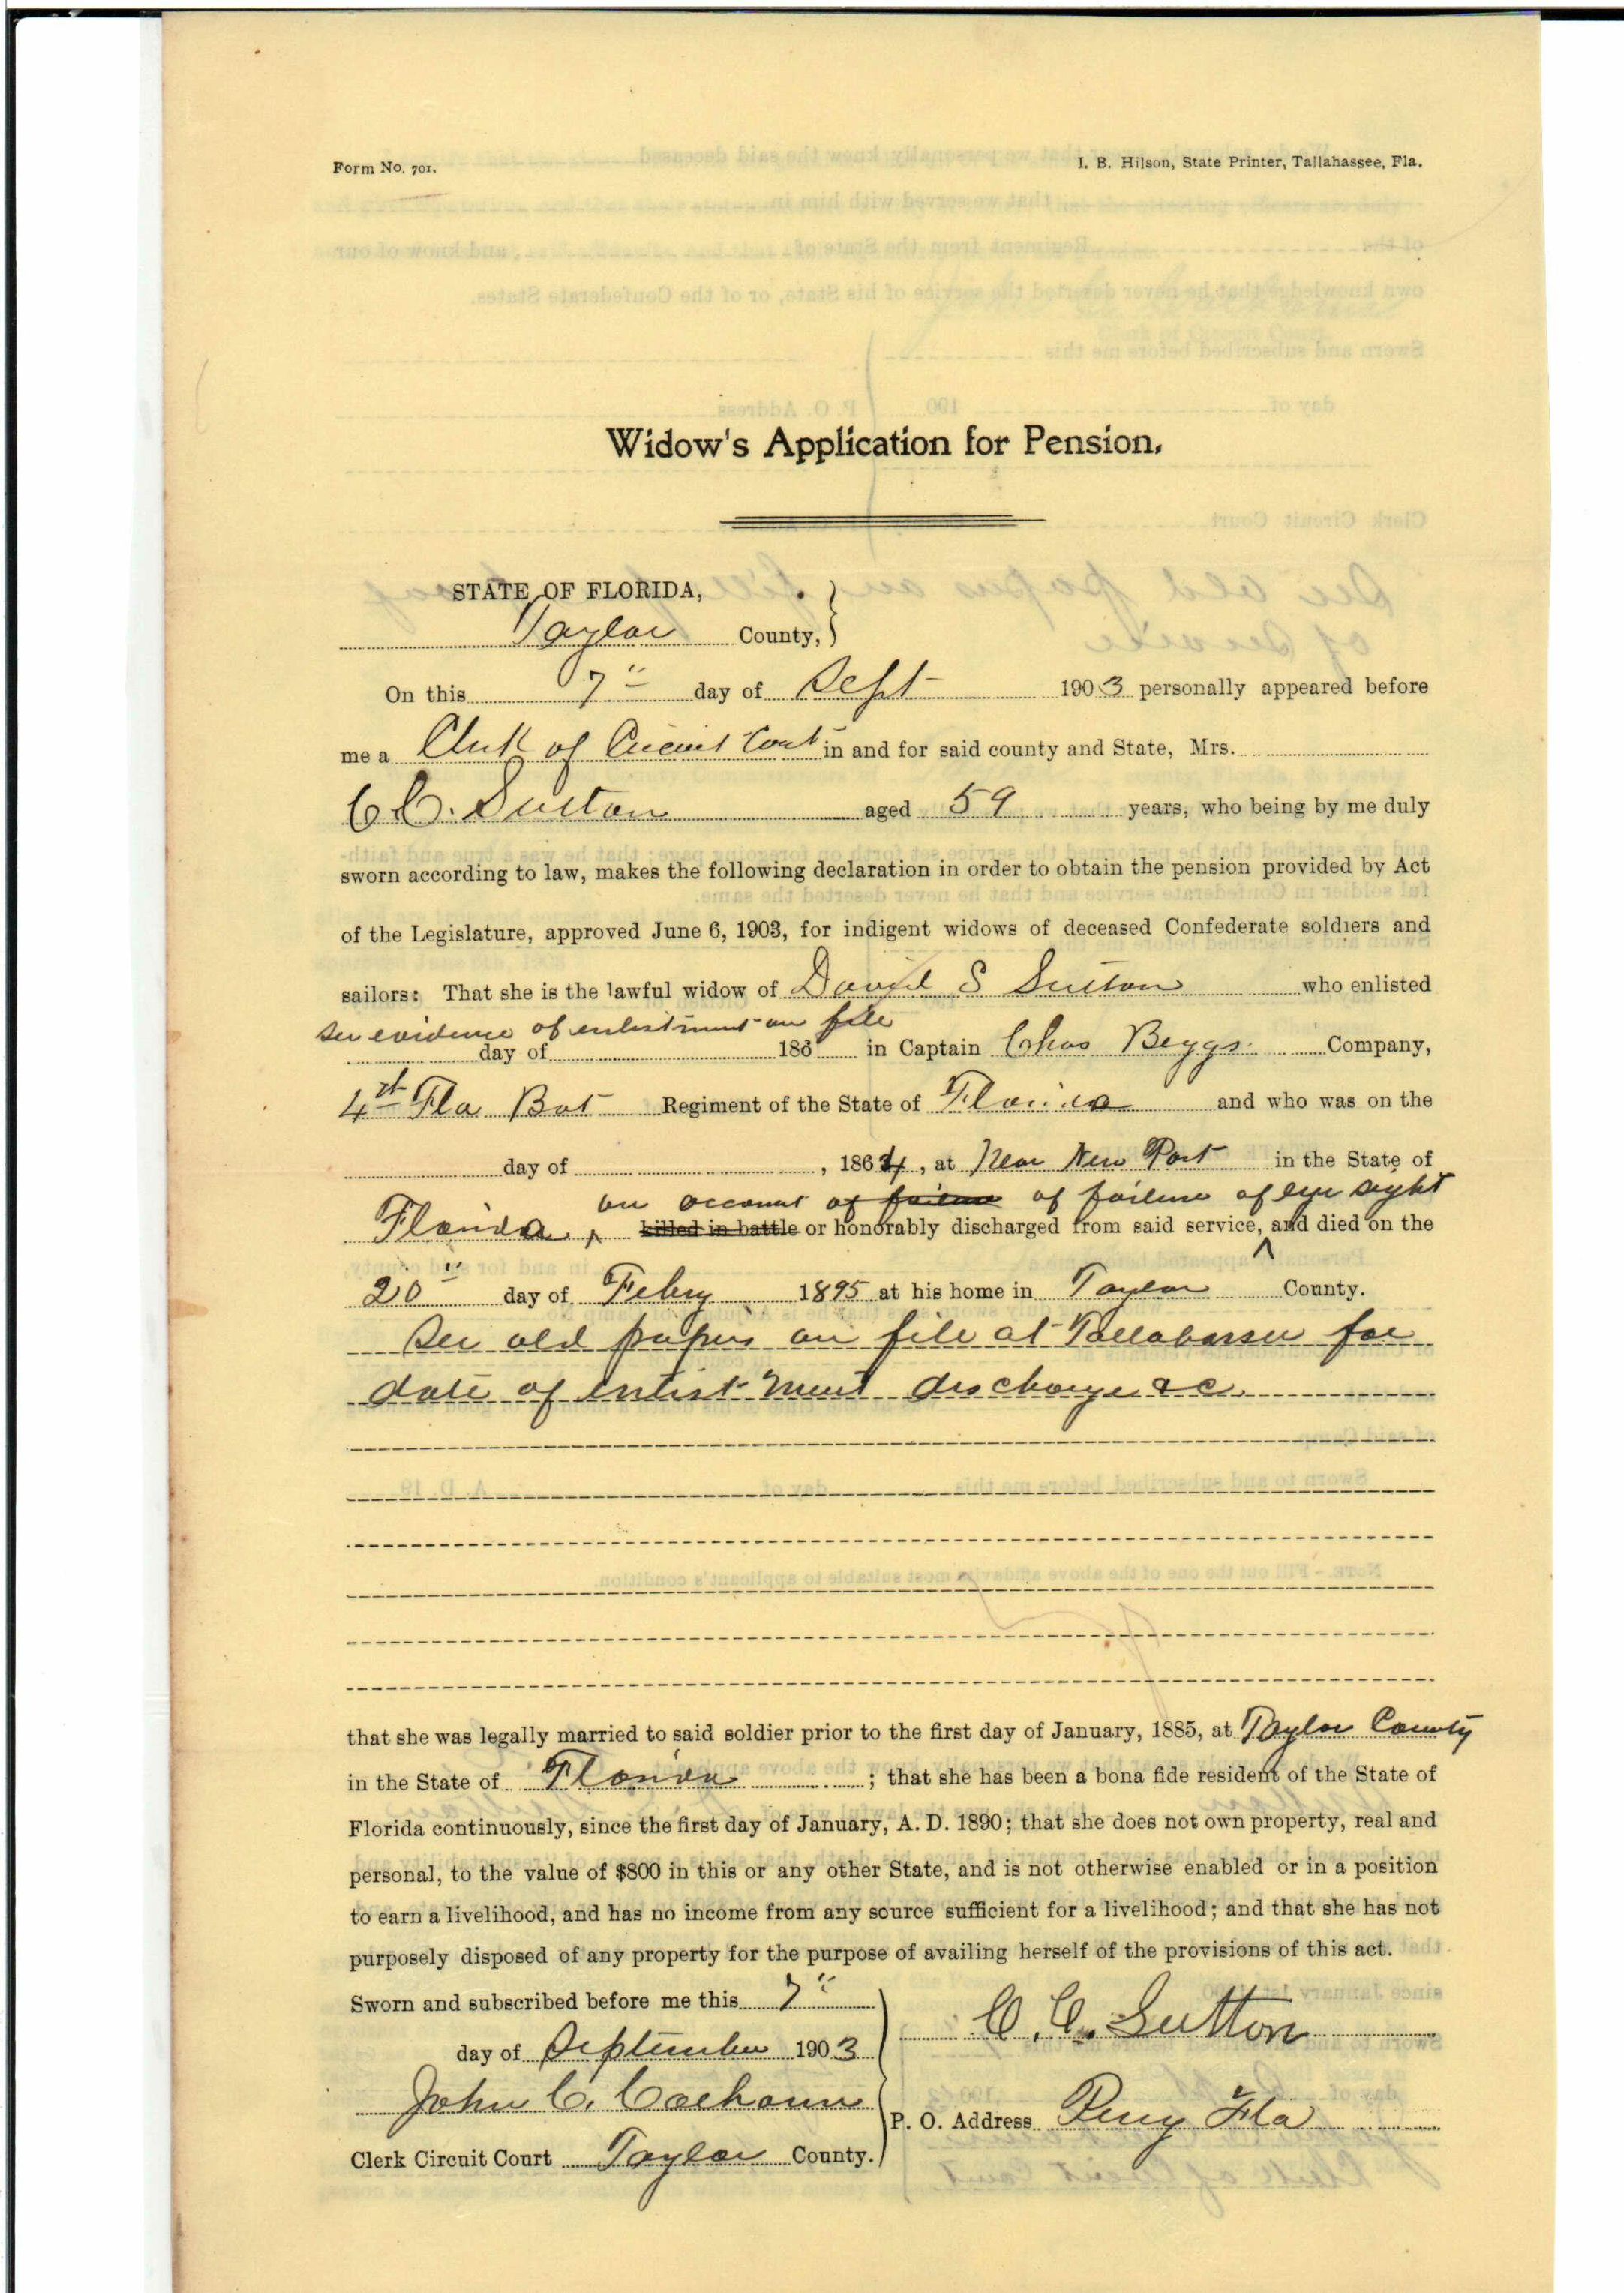 Form No. 701.
I. B. Hilson, State Printer, Tallahassee, Fla.
Widow's Application for Pension.
STATE OF FLORIDA,
Taylor County,
On this 7" day of Sept 1903 personally appeared before
me a Clerk of Circuit Court in and for said county and State, Mrs.
C C. Sutton aged 59 years, who being by me duly
sworn according to law, makes the following declaration in order to obtain the pension provided by Act
of the Legislature, approved June 6, 1903, for indigent widows of deceased Confederate soldiers and
sailors: That she is the lawful widow of David S Sutton who enlisted
See evidence of enlistment on file
day of 186 in Captain Chas Beggs Company,
4th Fla Bat Regiment of the State of Florida and who was on the
day of , 1864, at Near New Port in the State of
on account of failure of failure of eye sight
Florida, killed in battle or honorably discharged from said service, and died on the
20" day of Febry 1895 at his home in Taylor County.
See old papers on file at Tallahassee for
date of enlistment discharge &c.
that she was legally married to said soldier prior to the first day of January, 1885, at Taylor County
in the State of Florida ; that she has been a bona fide resident of the State of
Florida continuously, since the first day of January, A. D. 1890; that she does not own property, real and
personal, to the value of $800 in this or any other State, and is not otherwise enabled or in a position
to earn a livelihood, and has no income from any source sufficient for a livelihood; and that she has not
purposely disposed of any property for the purpose of availing herself of the provisions of this act.
Sworn and subscribed before me this 7"
day of September 1903
John C. Calhoun
Clerk Circuit Court Taylor County.
C. C. Sutton
P. O. Address Perry Fla